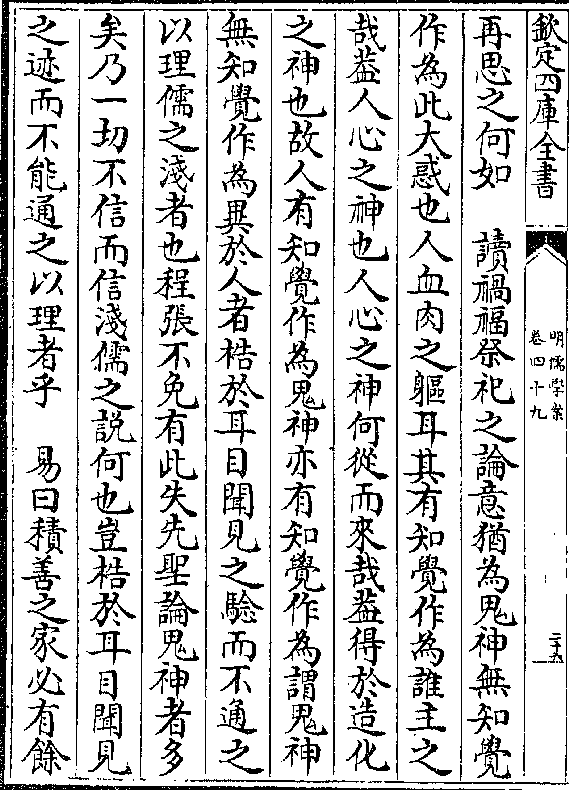 欽定四庫全書
明儒學案
卷四十九
二十九
再思之何如　讀禍福祭祀之論意猶為鬼神無知覺
作為此大惑也人血肉之軀耳其有知覺作為誰主之
哉葢人心之神也人心之神何從而來哉葢得於造化
之神也故人有知覺作為鬼神亦有知覺作為謂鬼神
無知覺作為異於人者梏於耳目聞見之驗而不通之
以理儒之淺者也程張不免有此失先聖論鬼神者多
矣乃一切不信而信淺儒之說何也豈梏於耳目聞見
之迹而不能通之以理者乎　易曰積善之家必有餘